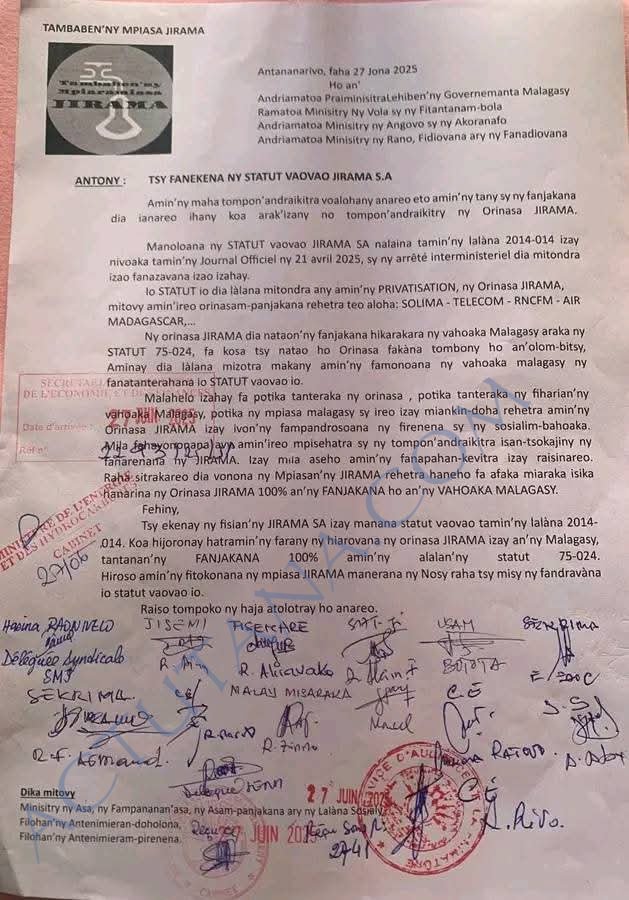 TAMBABEN'NY MPIASA JIRAMA
Tambaben'ny
Mpiaramiasa
JIRAMA
Antananarivo, faha 27 Jona 2025
Ho an'
Andriamatoa PraiminisitraLehiben'ny Governemanta Malagasy
Ramatoa Minisitry Ny Vola sy ny Fitantanam-bola
Andriamatoa Minisitry ny Angovo sy ny Akoranafo
Andriamatoa Minisitry ny Rano, Fidiovana ary ny Fanadiovana
ANTONY : TSY FANEKENA NY STATUT VAOVAO JIRAMA S.A
Amin'ny maha tompon'andraikitra voalohany anareo eto amin'ny tany sy ny fanjakana
dia ianareo ihany koa arak'izany no tompon'andraikitry ny Orinasa JIRAMA.
Manoloana ny STATUT vaovao JIRAMA SA nalaina tamin'ny lalàna 2014-014 izay
nivoaka tamin'ny Journal Officiel ny 21 avril 2025, sy ny arrêté interministeriel dia mitondra
izao fanazavana izao izahay.
Io STATUT io dia làlana mitondra any amin'ny PRIVATISATION, ny Orinasa JIRAMA,
mitovy amin'ireo orinasam-panjakana rehetra teo aloha: SOLIMA - TELECOM - RNCFM - AIR
MADAGASCAR,...
Ny orinasa JIRAMA dia nataon'ny fanjakana hikarakara ny vahoaka Malagasy araka ny
STATUT 75-024, fa kosa tsy natao ho Orinasa fakàna tombony ho an'olom-bitsy,
Aminay dia làlana mizotra makany amin'ny famonoana ny vahoaka malagasy ny
fanatanterahana io STATUT vaovao io.
Malahelo izahay fa potika tanteraka ny orinasa , potika tanteraka ny fiharian'ny
vahoaka Malagasy, potika ny mpiasa malagasy sy ireo izay miankin-doha rehetra amin'ny
Orinasa JIRAMA izay ivon'ny fampandrosoana ny firenena sy ny sosialim-bahoaka.
Mila fahavononana avy amin'ireo mpisehatra sy ny tompon'andraikitra isan-tsokajiny ny
fanarenana ny JIRAMA. Izay mila aseho amin'ny fanapahan-kevitra izay raisinareo.
Raha sitrakareo dia vonona ny Mpiasan'ny JIRAMA rehetra haneho fa afaka miaraka isika
hanarina ny Orinasa JIRAMA 100% an'ny FANJAKANA ho an'ny VAHOAKA MALAGASY.
Fehiny,
Tsy ekenay ny fisian'ny JIRAMA SA izay manana statut vaovao tamin'ny lalàna 2014-
014. Koa hijoronay hatramin'ny farany ny hiarovana ny orinasa JIRAMA izay an'ny Malagasy,
tantanan'ny FANJAKANA 100% amin'ny alalan'ny statut 75-024.
Hiroso amin'ny fitokonana ny mpiasa JIRAMA manerana ny Nosy raha tsy misy ny fandravàna
io statut vaovao io.
Raiso tompoko ny haja atolotray ho anareo.
DE L'ECONOMIE ET DES FINANCES
Date d'arrivée :
27 JUIN 2025
Réf n°
CABINET
27/06
Hasina RAONIVELO
JISEMI
USAM
SEKRIMA
Délégués Syndicale
SMJ
SEKRIMA
MALAY MIBARAKA
C.E
R. Zinno
Délégué
27 JUIN 2025
C.E
Dika mitovy
Ministry ny Asa, ny Fampananan'asa, ny Asam-panjakana ary ny Lalàna Sosialy
Filohan'ny Antenimieran-doholona,
Filohan'ny Antenimieram-pirenena.
27 JUIN 2025
CABINET
ACTUTANA.COM